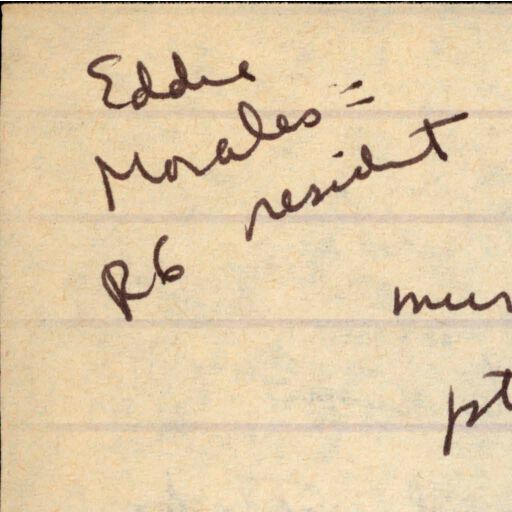 Eddie
Morales =
resident
R6